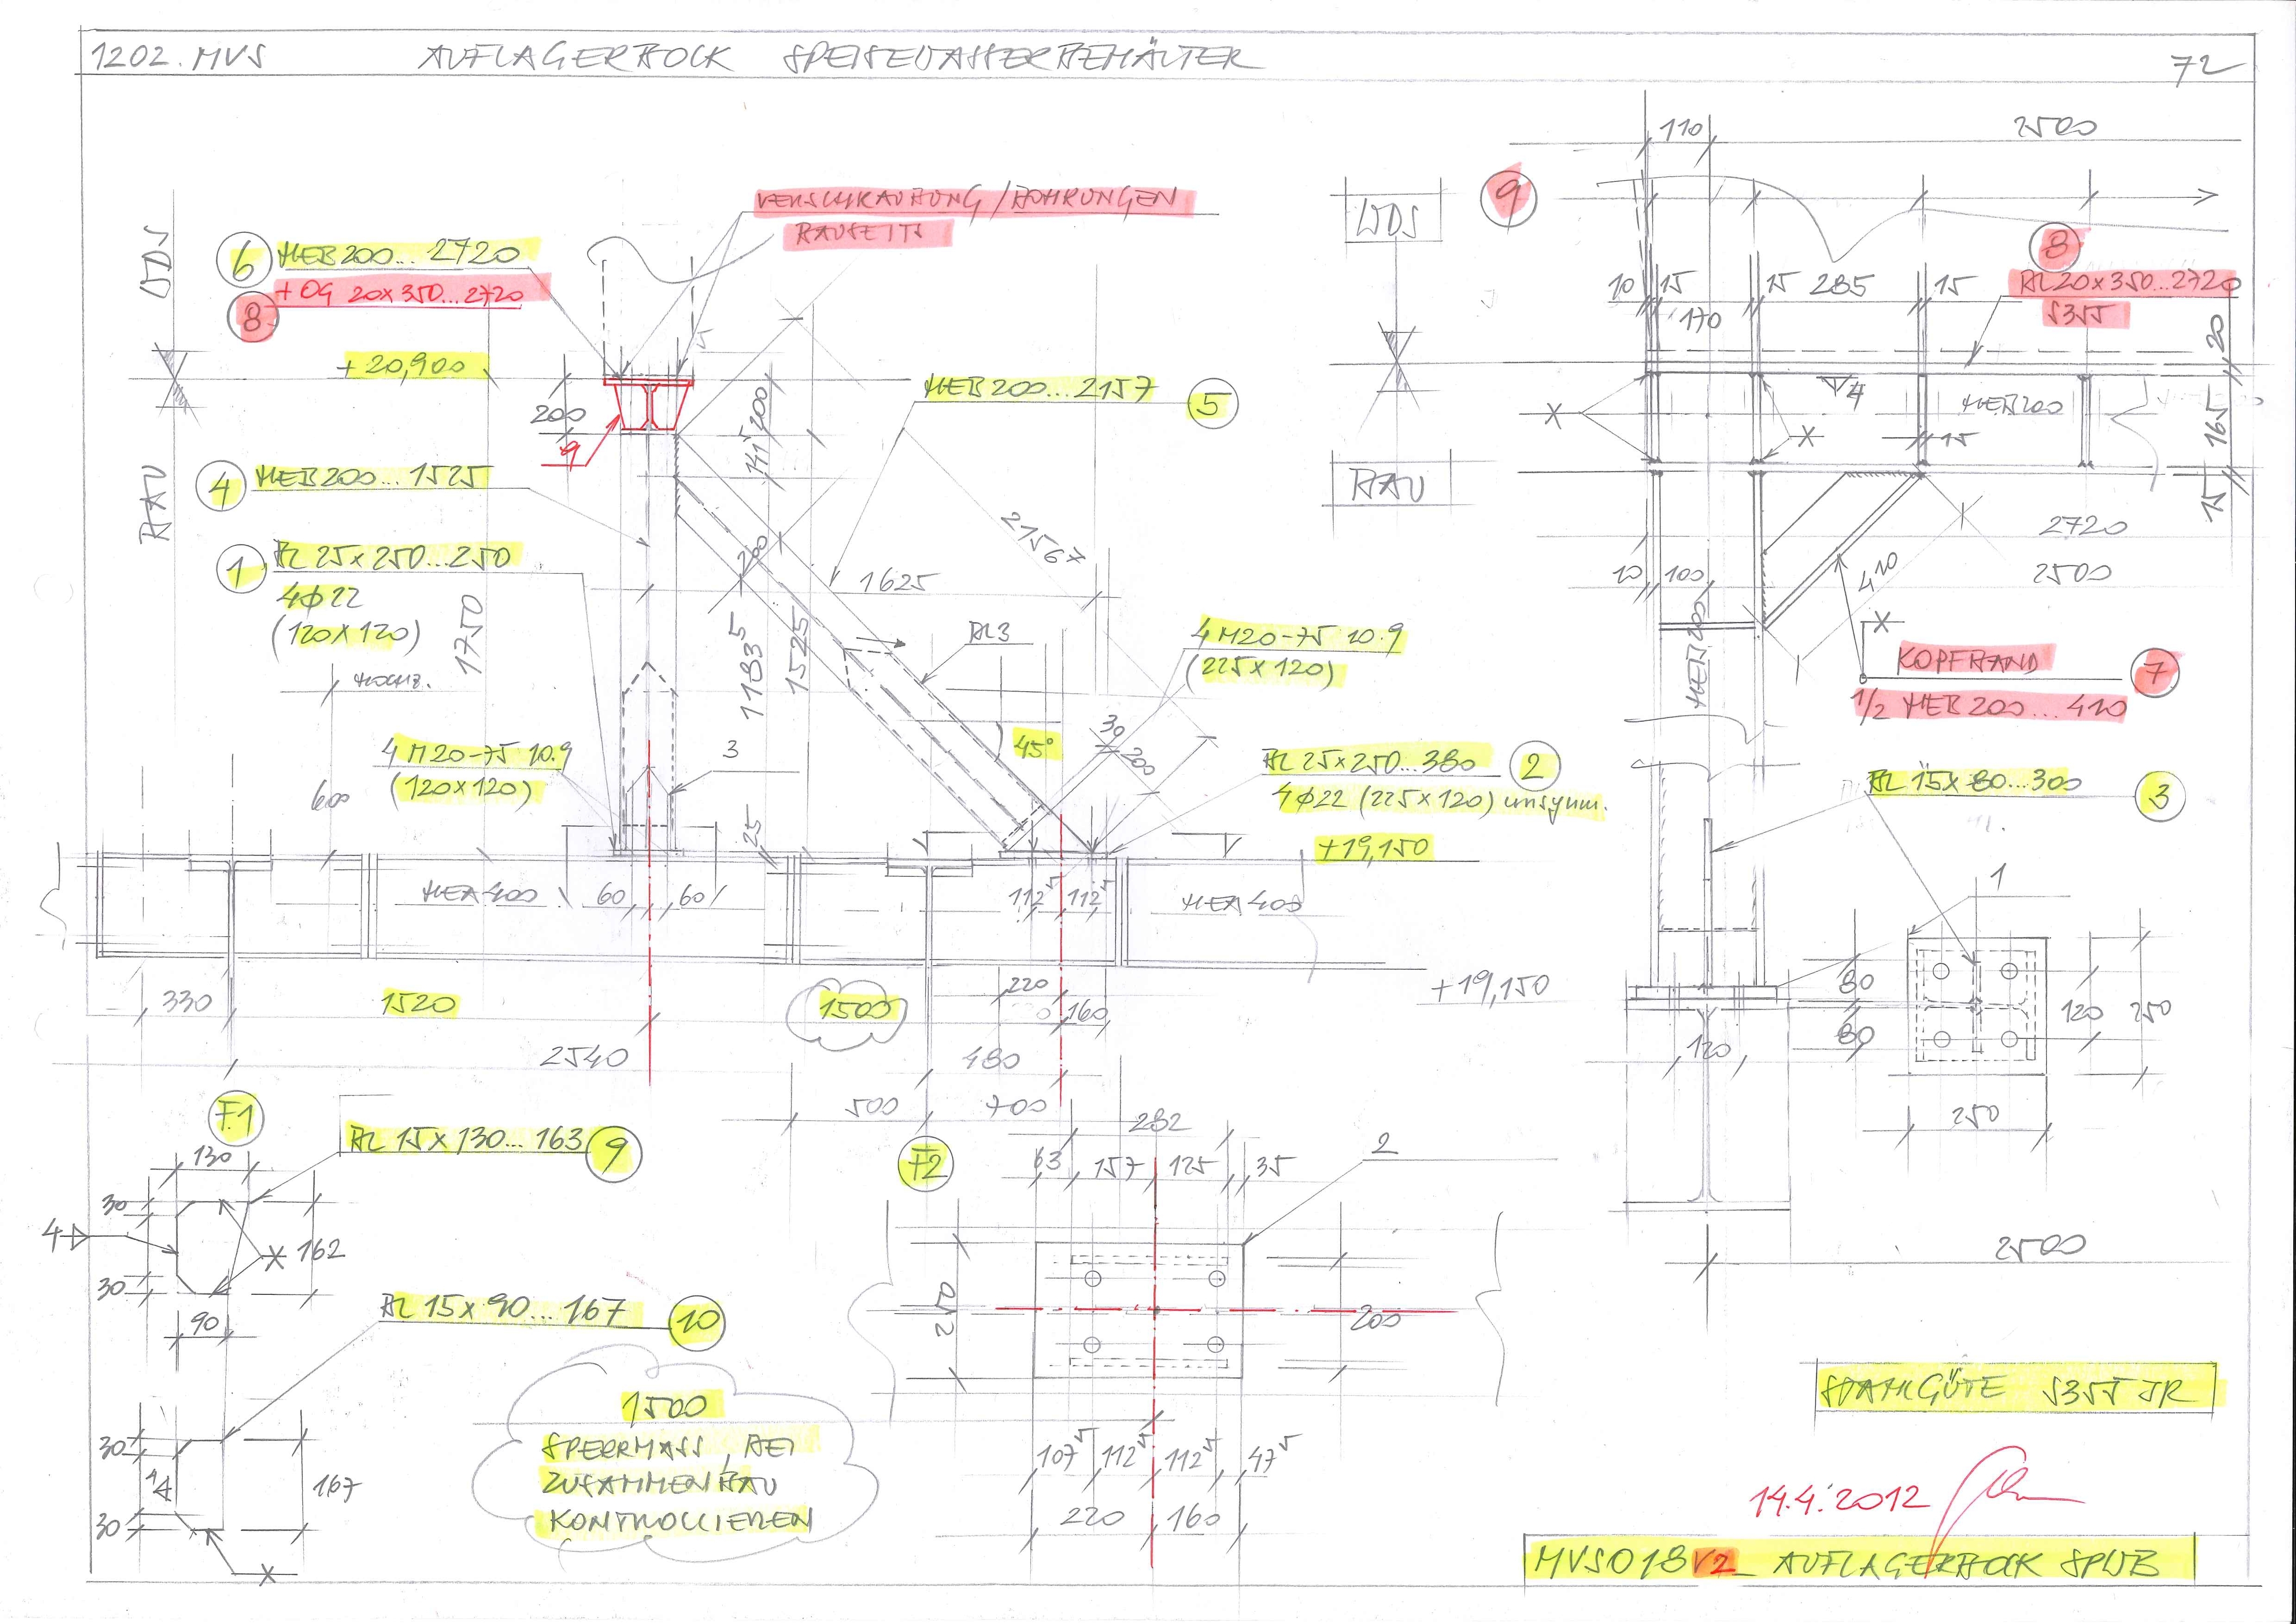 1202. MVS AUFLAGERBOCK SPEISEWASSERBEHÄLTER 72
VERSCHRAUBUNG / BOHRUNGEN
BAUSEITS
WDS
BAU
6 HEB 200... 2720
8 + OG 20x350...2720
+20,900
200
9
4 HEB 200... 1525
1 BL 25x250...250
4φ22
(120x120)
1750
600
4 M20-75 10.9
(120x120)
3
25
HEB 200... 2157 5
200
141⁵
1183⁵
1525
200
1625
2156⁷
BL3
45°
4 M20-75 10.9
(225x120)
30
200
BL 25x250...380 2
4φ22 (225x120) unsymm.
+19,150
HEA 400
60 60
112⁵ 112⁵
HEA 400
+19,150
330 1520 1500
220 160
2540 480
500 700
F.1
BL 15x130... 163 9
130
30
4
30
162
X
90
BL 15x90... 167 10
30
4
30
167
X
1500
SPERRMASS, BEI
ZUSAMMENBAU
KONTROLLIEREN
F2
282
63 157 125 35
2
250
200
107⁵ 112⁵ 112⁵ 47⁵
220 160
WDS
9
BAU
110 2500
8
BL 20x350...2720
S355
10 15 15 285 15
170
20
165
15
X
X
4
HEB 200
15
2720
10 100 2500
410
HEB 200
X
KOPFBAND 7
1/2 HEB 200... 410
BL 15x80...300 3
1
80
80
120
120 250
250
2500
STAHLGÜTE S355 JR
14.4.2012
MVS018V2_ AUFLAGERBOCK SPWB